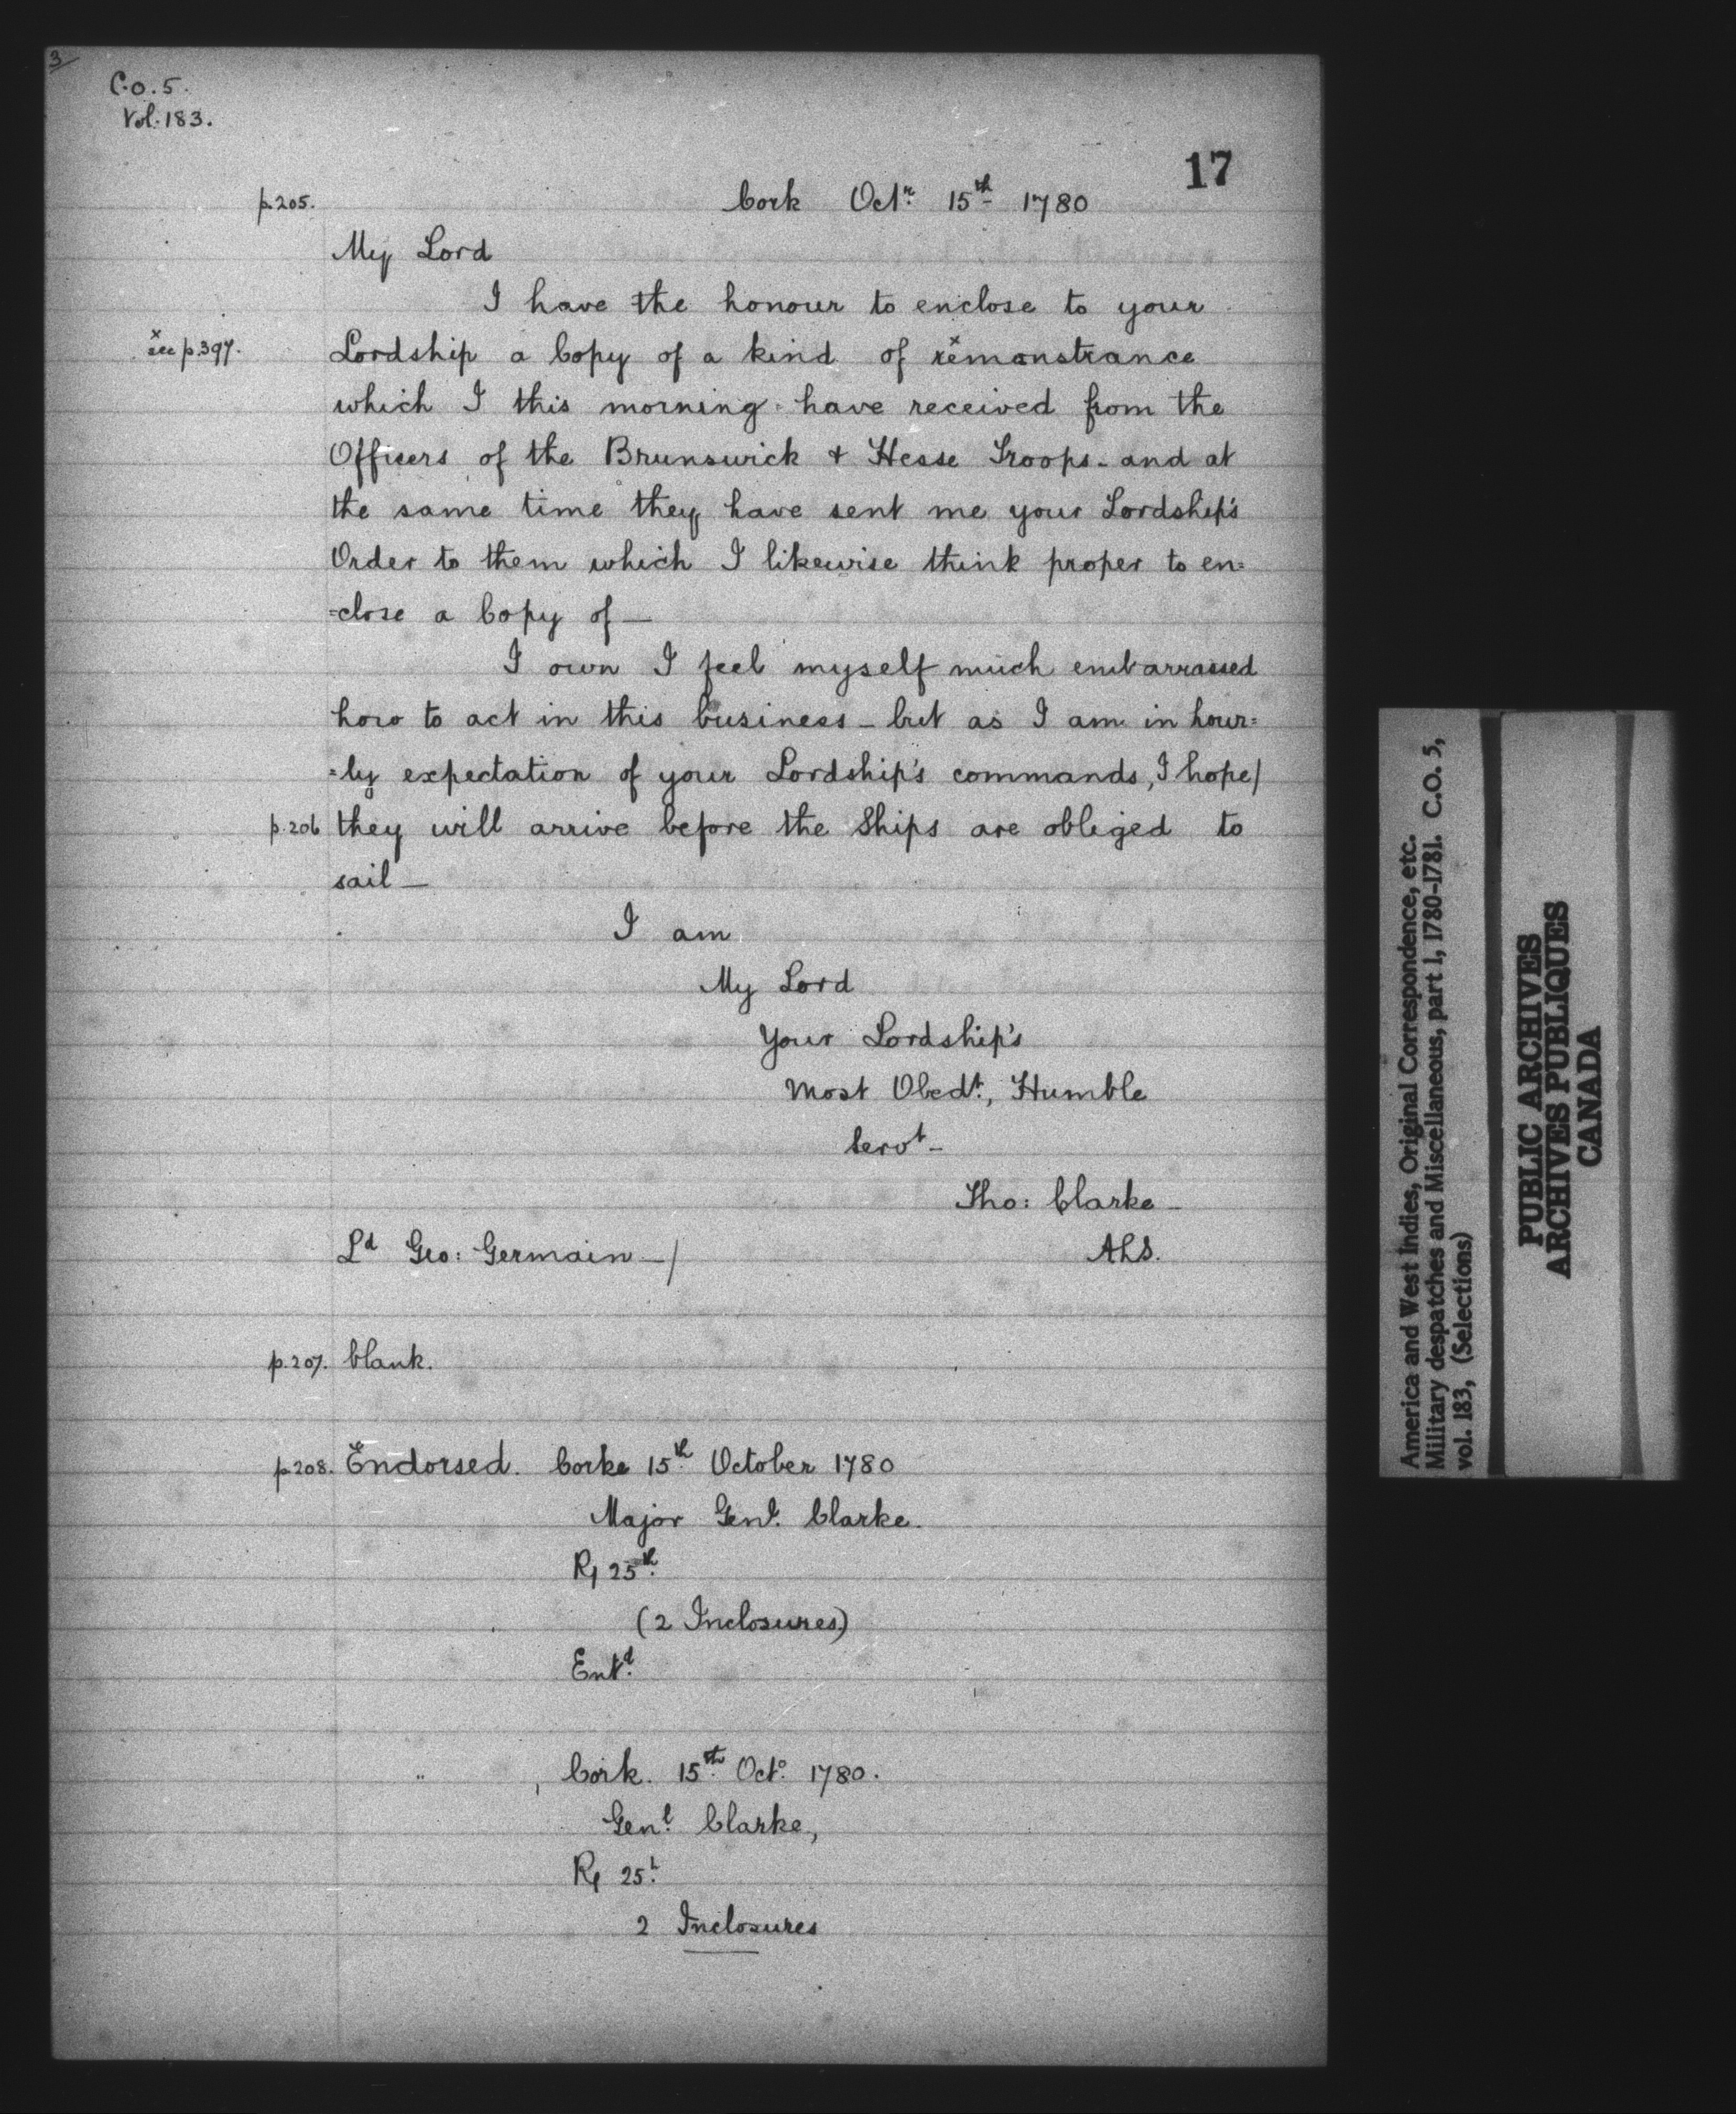 3
C.O.5.
Vol. 183.
17
p.205. Cork Octr. 15th 1780
My Lord
I have the honour to enclose to your
x see p.397. Lordship a Copy of a kind of xremonstrance
which I this morning have received from the
Officers of the Brunswick & Hesse Troops - and at
the same time they have sent me your Lordship's
Order to them which I likewise think proper to en=
=close a Copy of —
I own I feel myself much embarrassed
how to act in this business - but as I am in hour=
=ly expectation of your Lordship's commands, I hope/
p.206 they will arrive before the Ships are obliged to
sail —
I am
My Lord
Your Lordship's
Most Obedt., Humble
Servt -
Tho: Clarke -
Ld Geo: Germain —/ ALS.
p.207. blank.
p.208. Endorsed. Corke 15th. October 1780
Major Genl. Clarke.
R, 25th.
(2 Inclosures)
Entd.
" , Cork. 15th. Octo. 1780.
Genl. Clarke,
R, 25h.
2 Inclosures
America and West Indies, Original Correspondence, etc.
Military despatches and Miscellaneous, part 1, 1780-1781. C.O. 5,
vol. 183, (Selections)
PUBLIC ARCHIVES
ARCHIVES PUBLIQUES
CANADA